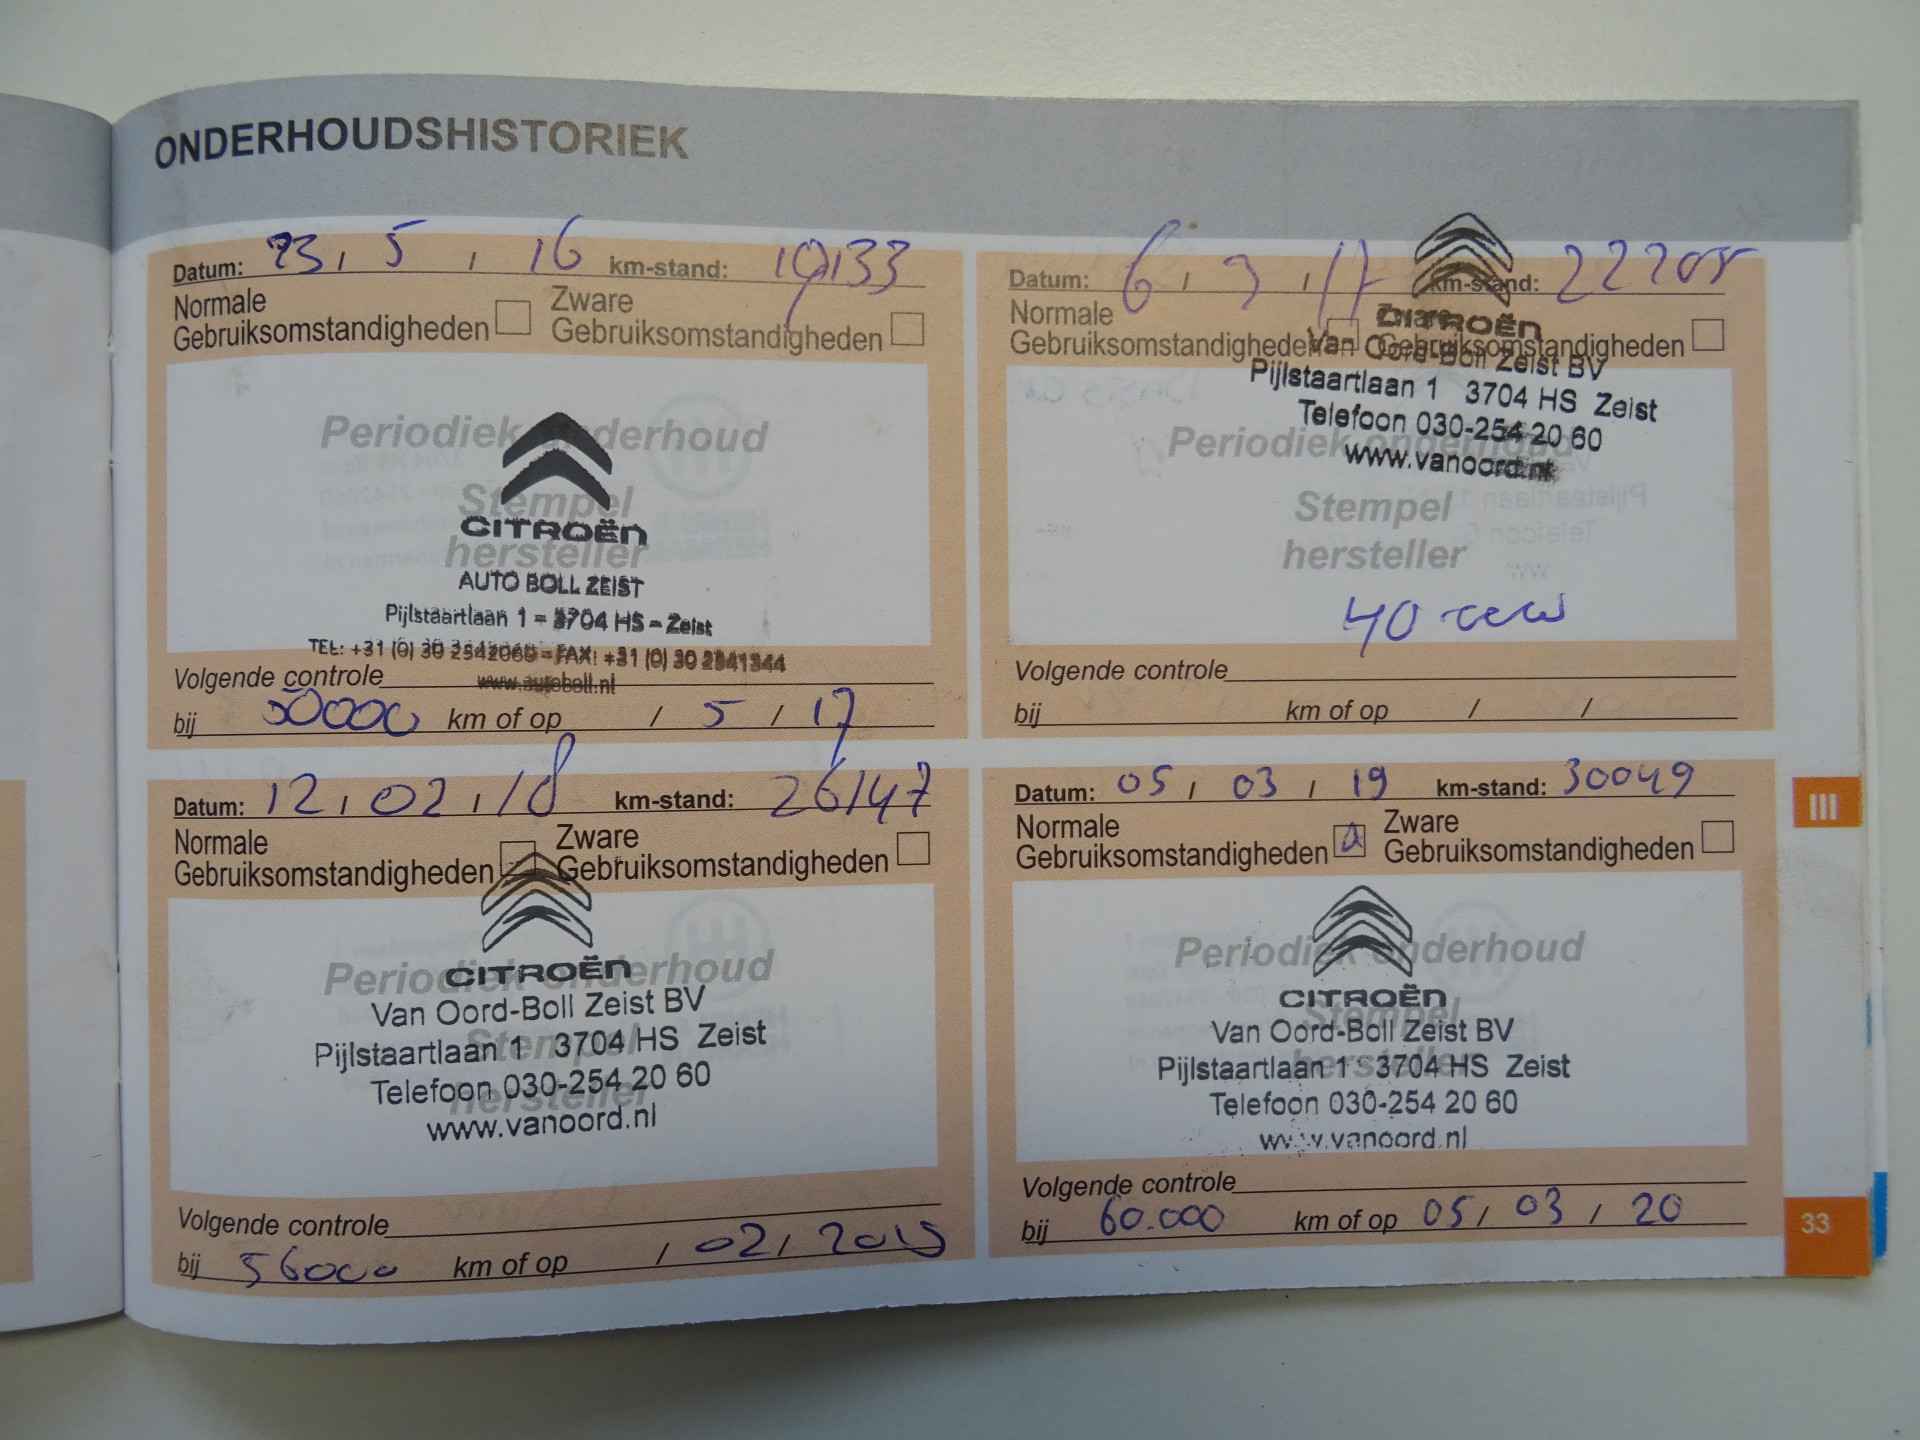 ONDERHOUDSHISTORIEK
Datum: 23, 5, 16 km-stand: 19133
Normale Zware
Gebruiksomstandigheden Gebruiksomstandigheden
Periodiek onderhoud
Stempel
hersteller
CITROËN
AUTO BOLL ZEIST
Pijlstaartlaan 1 - 3704 HS - Zeist
TEL: +31 (0) 30 2542060 - FAX: +31 (0) 30 2541344
www.autoboll.nl
Volgende controle
bij 50000 km of op / 5 / 17
Datum: 6, 3, 17 km-stand:
Normale Zware
Gebruiksomstandigheden Gebruiksomstandigheden
CITROËN
Van Oord-Boll Zeist BV
Pijlstaartlaan 1 3704 HS Zeist
Telefoon 030-254 20 60
www.vanoord.nl
Periodiek onderhoud
Stempel
hersteller
40
Volgende controle
bij km of op / /
Datum: 12, 02, 18 km-stand: 26147
Normale Zware
Gebruiksomstandigheden Gebruiksomstandigheden
Periodiek onderhoud
Stempel
hersteller
CITROËN
Van Oord-Boll Zeist BV
Pijlstaartlaan 1 3704 HS Zeist
Telefoon 030-254 20 60
www.vanoord.nl
Volgende controle
bij 56000 km of op / 02 / 2019
Datum: 05, 03, 19 km-stand: 30049
Normale Zware
Gebruiksomstandigheden Gebruiksomstandigheden
Periodiek onderhoud
Stempel
hersteller
CITROËN
Van Oord-Boll Zeist BV
Pijlstaartlaan 1 3704 HS Zeist
Telefoon 030-254 20 60
www.vanoord.nl
Volgende controle
bij 60.000 km of op 05 / 03 / 20
III
33